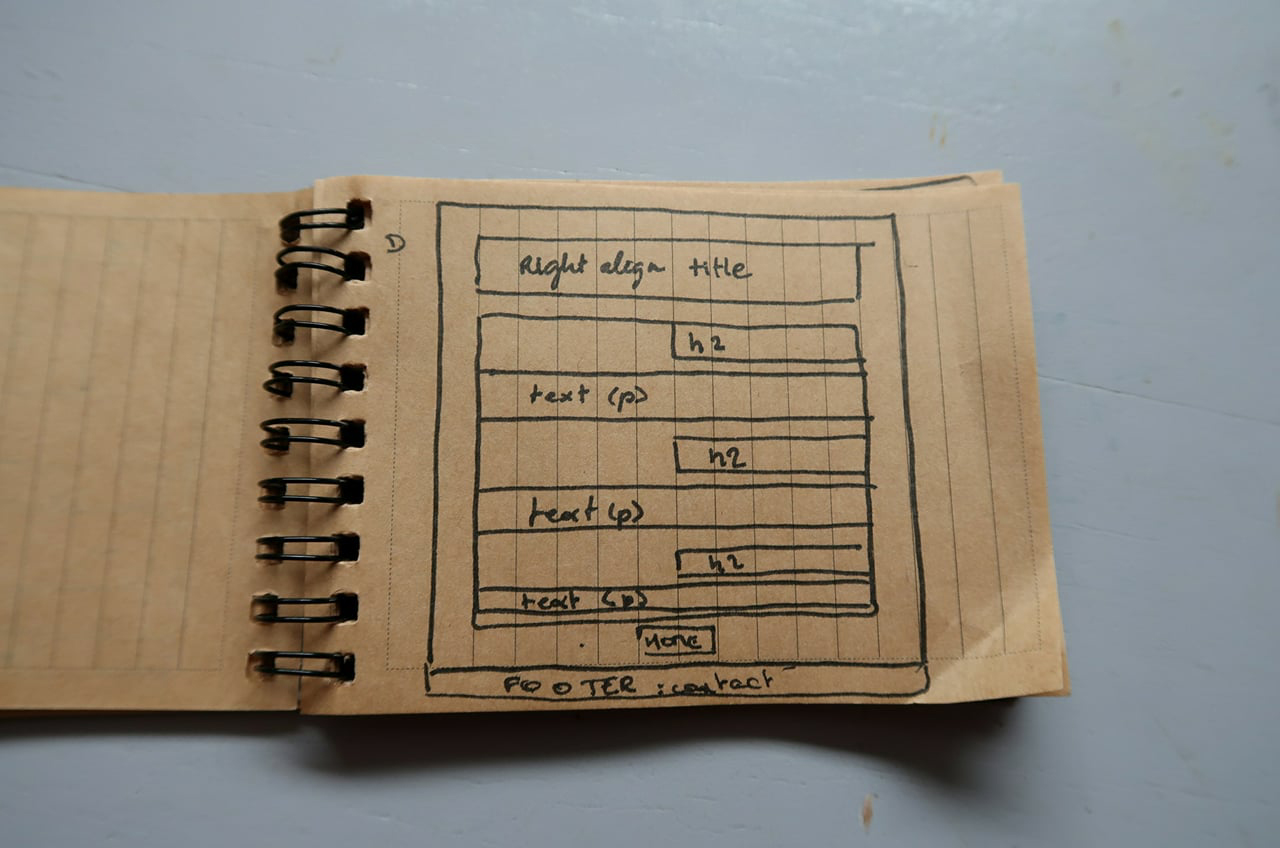 D
Right align title
h2
text (p)
h2
text (p)
h2
text (p)
HOME
FOOTER : contact